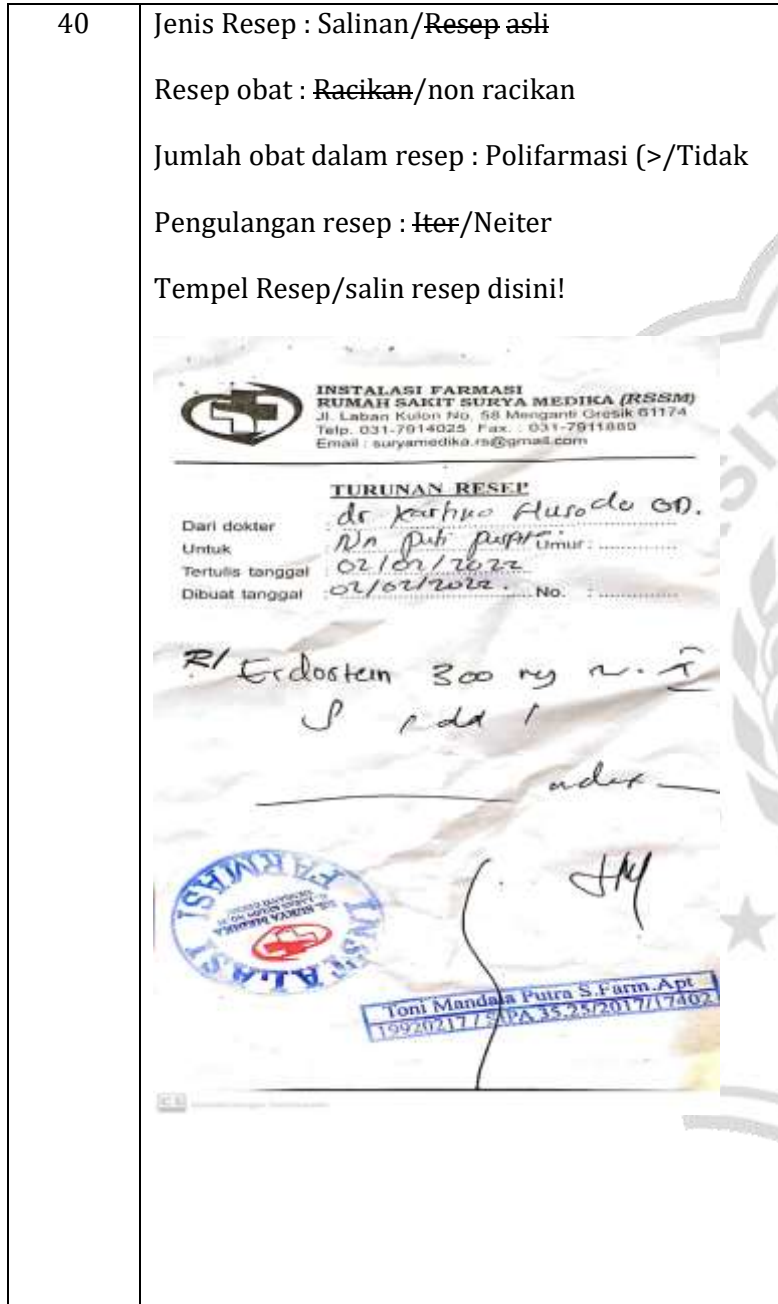 40
Jenis Resep : Salinan/Resep asli
Resep obat : Racikan/non racikan
Jumlah obat dalam resep : Polifarmasi (>/Tidak
Pengulangan resep : Iter/Neiter
Tempel Resep/salin resep disini!
INSTALASI FARMASI
RUMAH SAKIT SURYA MEDIKA (RSSM)
Jl. Laban Kulon No. 58 Menganti Gresik 61174
Telp. 031-7914025 Fax. : 031-7911889
Email : suryamedika.rs@gmail.com
TURUNAN RESEP
Dari dokter : dr Husodo
Untuk : Umur :
Tertulis tanggal : 02/02/2022
Dibuat tanggal : 02/02/2022. No. :
R/ Erdostein 300 mg n. I
S 1 dd 1
INSTALASI FARMASI
Toni Mandala Putra S.Farm.Apt
19920217/SIPA.35.25/2017/17402
CS